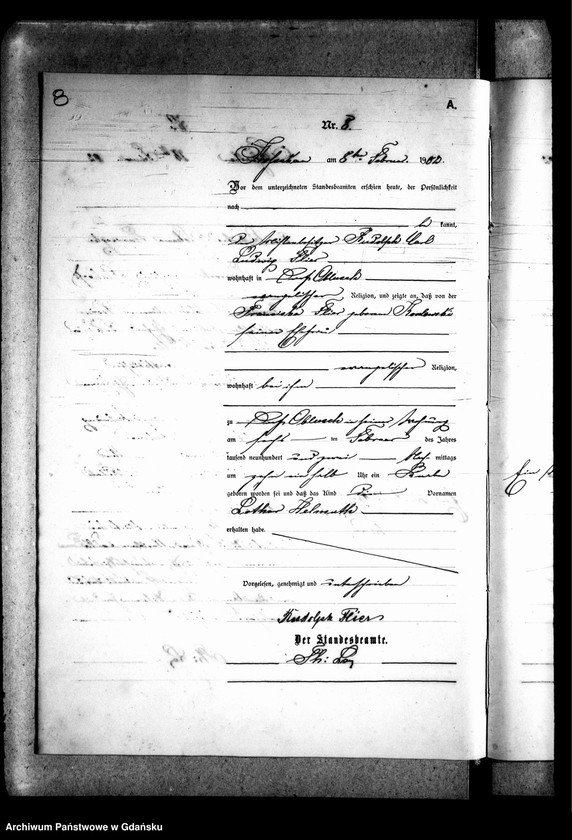 8
A.
Nr. 8.
am 8ten Februar 1902.
Vor dem unterzeichneten Standesbeamten erschien heute, der Persönlichkeit
nach
kannt,
der Rudolph Carl
Ludwig Flier
wohnhaft in Dorf Oblusch
evangelischer Religion, und zeigte an, daß von der
Franziska Flier geborene
seiner Ehefrau
evangelischer Religion,
wohnhaft bei ihm
zu Dorf Oblusch in seiner Wohnung
am ten Februar des Jahres
tausend neunhundert und zwei Nach mittags
um zehn ein halb Uhr ein Knabe
geboren worden sei und daß das Kind die Vornamen
Lothar Helmuth
erhalten habe.
Vorgelesen, genehmigt und unterschrieben
Rudolph Flier
Der Standesbeamte.
Archiwum Państwowe w Gdańsku